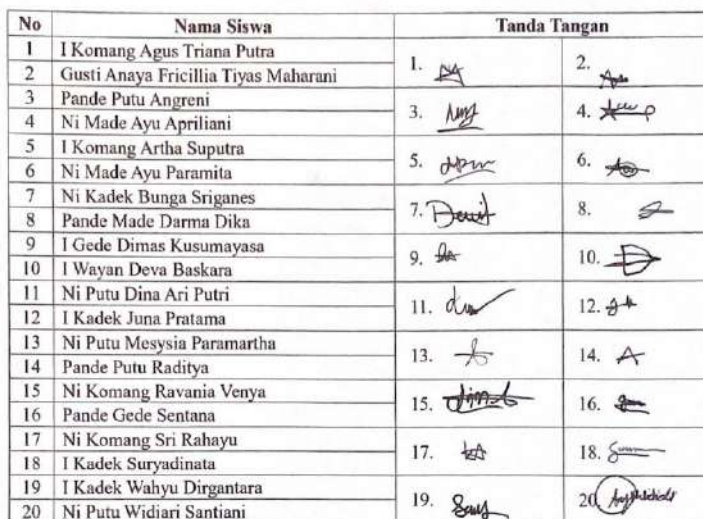 No Nama Siswa Tanda Tangan
1 I Komang Agus Triana Putra 1. 2.
2 Gusti Anaya Fricillia Tiyas Maharani
3 Pande Putu Angreni 3. 4.
4 Ni Made Ayu Apriliani
5 I Komang Artha Suputra 5. 6.
6 Ni Made Ayu Paramita
7 Ni Kadek Bunga Sriganes 7. 8.
8 Pande Made Darma Dika
9 I Gede Dimas Kusumayasa 9. 10.
10 I Wayan Deva Baskara
11 Ni Putu Dina Ari Putri 11. 12.
12 I Kadek Juna Pratama
13 Ni Putu Mesysia Paramartha 13. 14.
14 Pande Putu Raditya
15 Ni Komang Ravania Venya 15. 16.
16 Pande Gede Sentana
17 Ni Komang Sri Rahayu 17. 18.
18 I Kadek Suryadinata
19 I Kadek Wahyu Dirgantara 19. 20.
20 Ni Putu Widiari Santiani